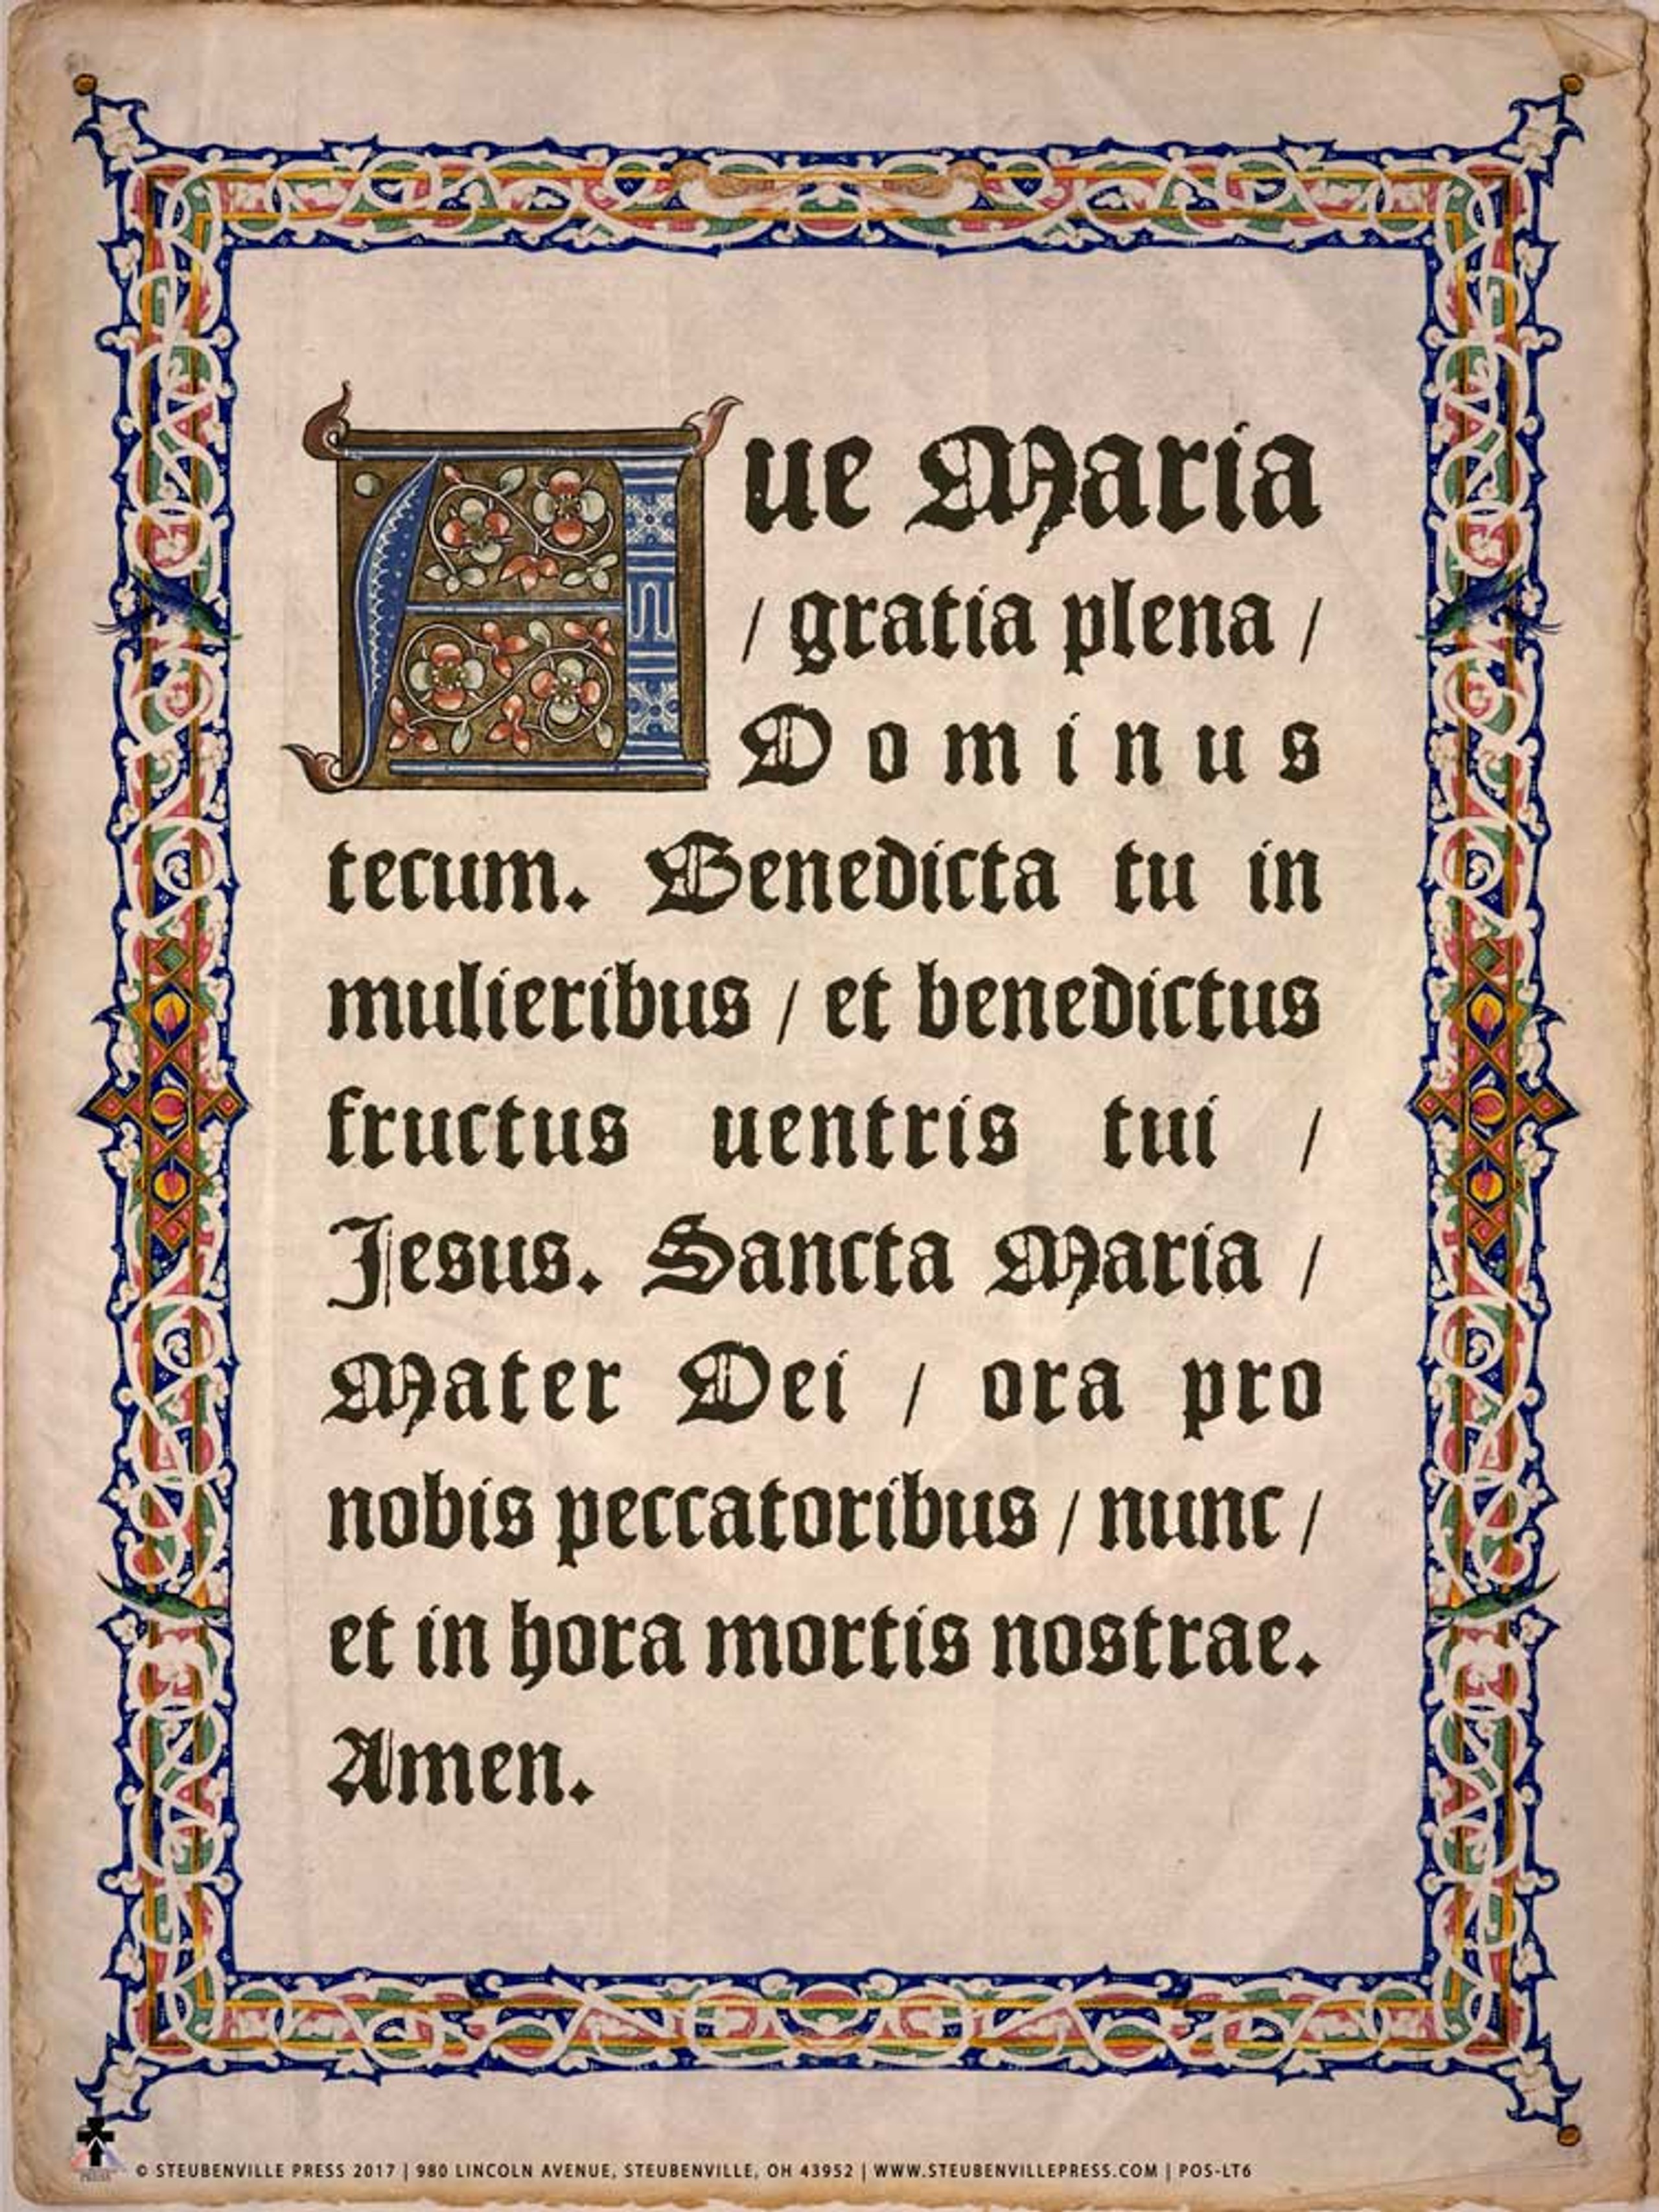 Aue Maria
/ gratia plena /
Dominus
tecum. Benedicta tu in
mulieribus / et benedictus
fructus uentris tui /
Jesus. Sancta Maria /
Mater Dei / ora pro
nobis peccatoribus / nunc /
et in hora mortis nostrae.
Amen.
© STEUBENVILLE PRESS 2017 | 980 LINCOLN AVENUE, STEUBENVILLE, OH 43952 | WWW.STEUBENVILLEPRESS.COM | POS-LT6